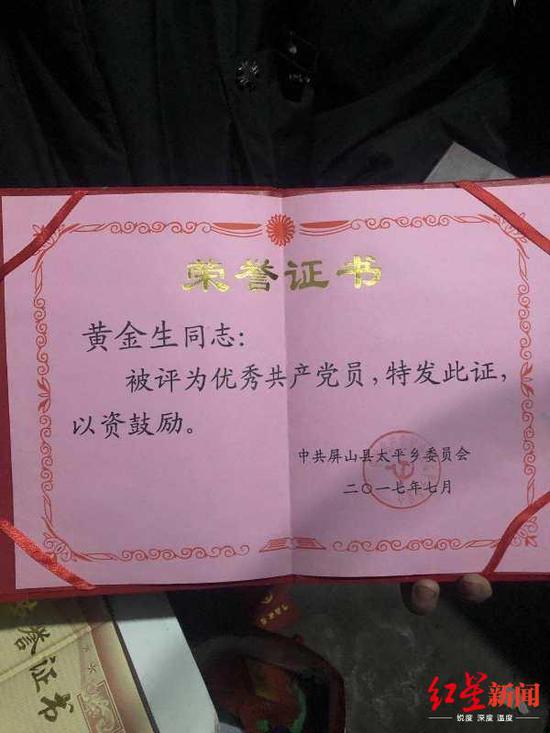 荣誉证书
黄金生同志：
被评为优秀共产党员，特发此证，
以资鼓励。
中共屏山县太平乡委员会
二〇一七年七月
誉证书
红星新闻
锐度 深度 温度